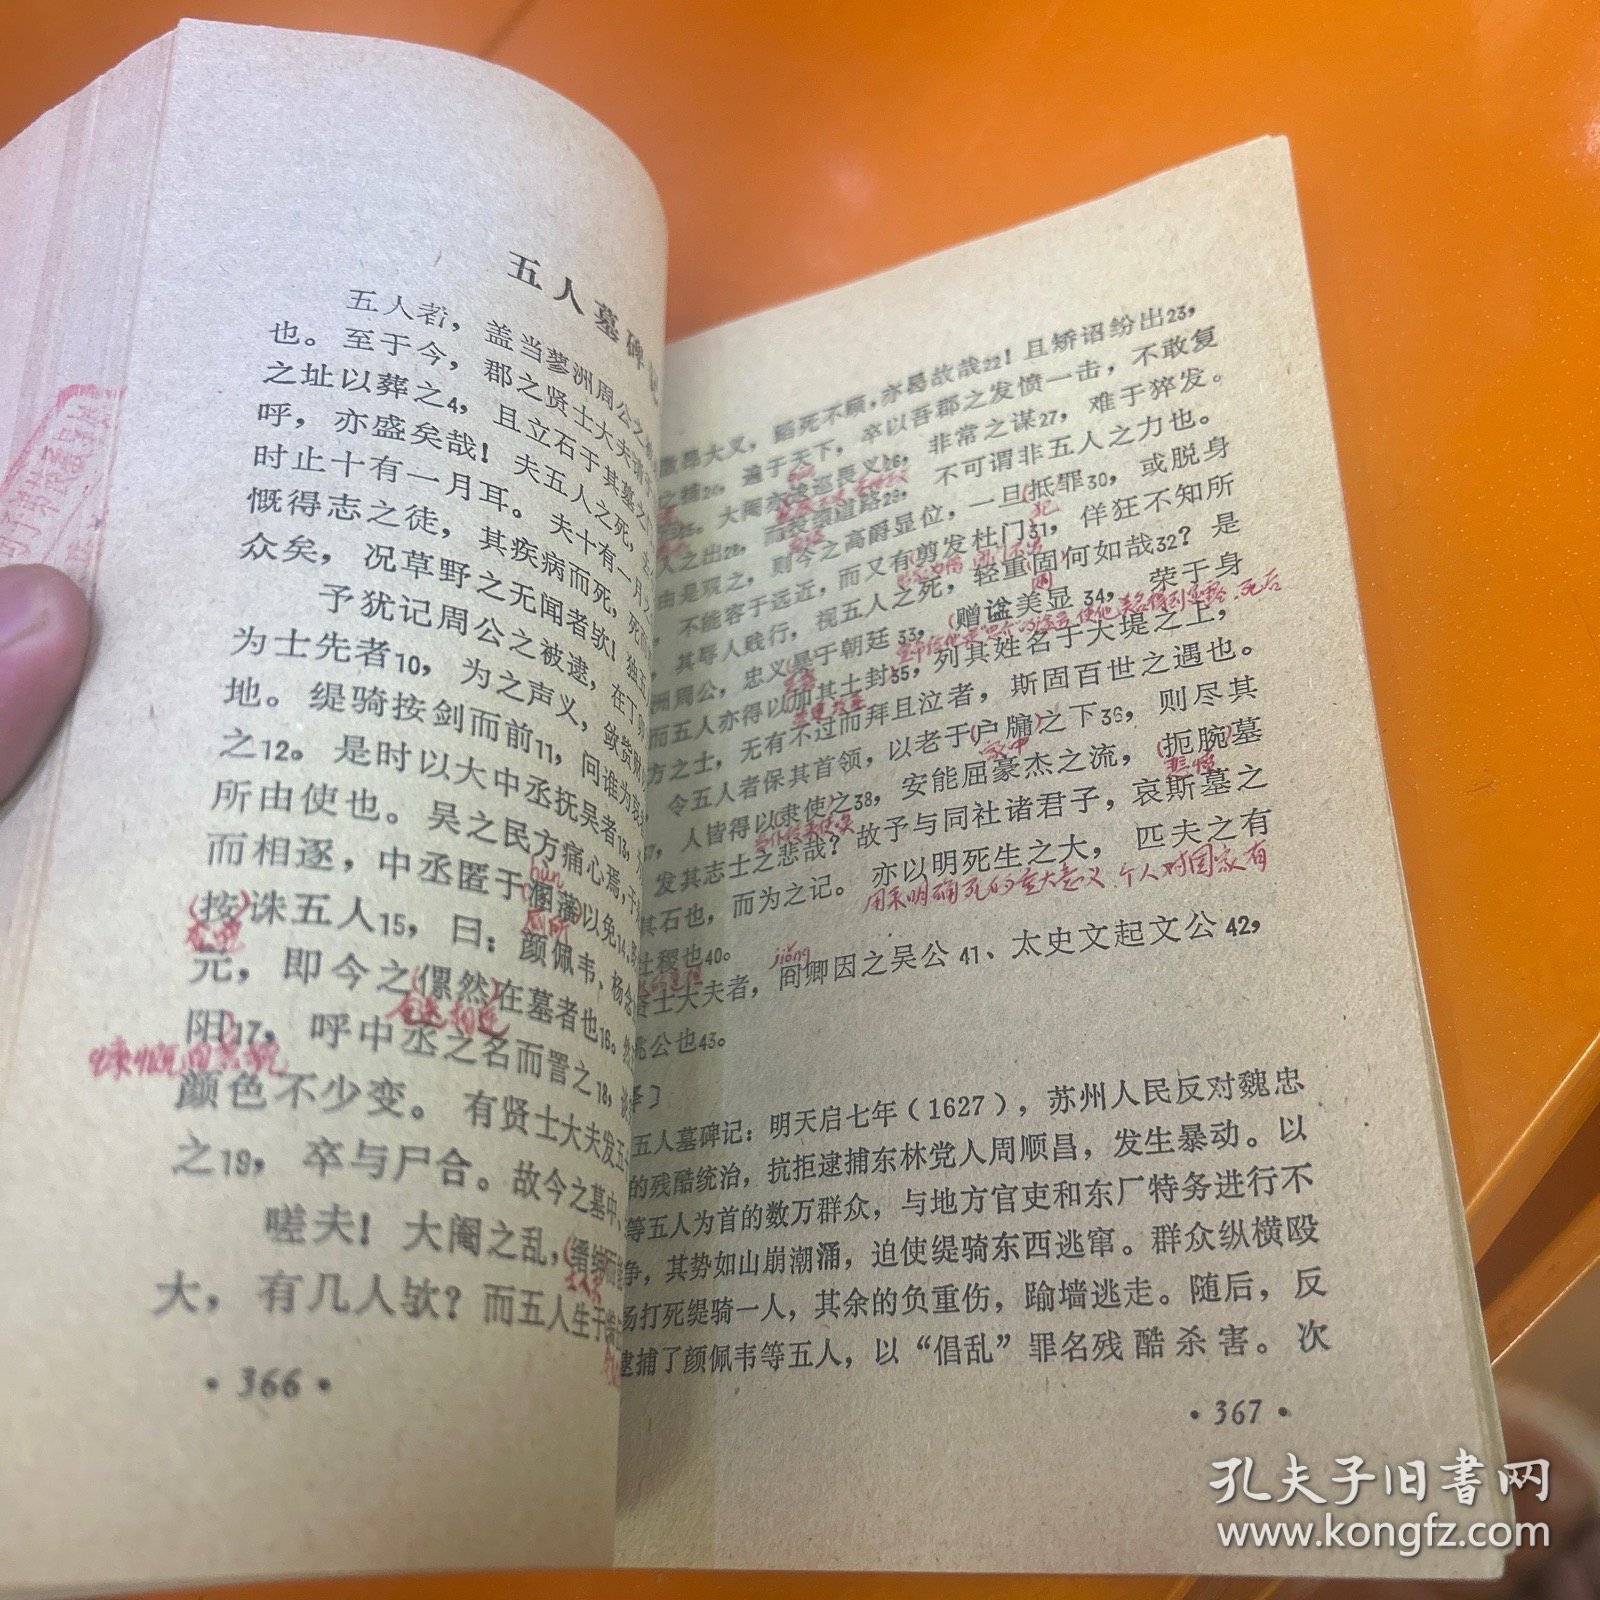 五人墓碑
五人者，盖当蓼洲周公之
也。至于今，郡之贤士大夫请于
之址以葬之4，且立石于其墓之
呼，亦盛矣哉！夫五人之死，
时止十有一月耳。夫十有一月之
慨得志之徒，其疾病而死，死而
众矣，况草野之无闻者欤！独五
予犹记周公之被逮，在丁卯
为士先者10，为之声义，敛赀财
地。缇骑按剑而前11，问谁为哀
之12。是时以大中丞抚吴者13，
所由使也。吴之民方痛心焉，于
hùn
而相逐，中丞匿于溷藩以免14。
厕所
(按)诛五人15，曰：颜佩韦、杨念
元，即今之(傫然)在墓者也16。然
阳17，呼中丞之名而詈之18，谈
颜色不少变。有贤士大夫发五
之19，卒与尸合。故今之墓中，
嗟夫！大阉之乱，(缙绅
大，有几人欤？而五人生于
·366·
激昂大义，蹈死不顾，亦曷故哉22！且矫诏纷出23，
之捕24，遍于天下，卒以吾郡之发愤一击，不敢复
25。大阉亦逡巡畏义26，非常之谋27，难于猝发。
人之出28，而投缳道路29，不可谓非五人之力也。
由是观之，则今之高爵显位，一旦(抵)罪30，或脱身
犯
不能容于远近，而又有剪发杜门31，佯狂不知所
其辱人贱行，视五人之死，轻重固何如哉32？是
洲周公，忠义(暴)于朝廷33，(赠谥美显34，荣于身
而五人亦得以加其土封35，列其姓名于大堤之上，
方之士，无有不过而拜且泣者，斯固百世之遇也。
令五人者保其首领，以老于(户牖)之下36，则尽其
家中
7，人皆得以隶使之38，安能屈豪杰之流，(扼腕)墓
悲愤
发其志士之悲哉？故予与同社诸君子，哀斯墓之
其石也，而为之记。亦以明死生之大，匹夫之有
用来明确死的重大意义 个人对国家有
社稷也40。
jiǒng
士大夫者，冏卿因之吴公41、太史文起文公42，
公也43。
五人墓碑记：明天启七年（1627），苏州人民反对魏忠
的残酷统治，抗拒逮捕东林党人周顺昌，发生暴动。以
等五人为首的数万群众，与地方官吏和东厂特务进行不
争，其势如山崩潮涌，迫使缇骑东西逃窜。群众纵横殴
场打死缇骑一人，其余的负重伤，踰墙逃走。随后，反
逮捕了颜佩韦等五人，以“倡乱”罪名残酷杀害。次
·367·
孔夫子旧书网
www.kongfz.com